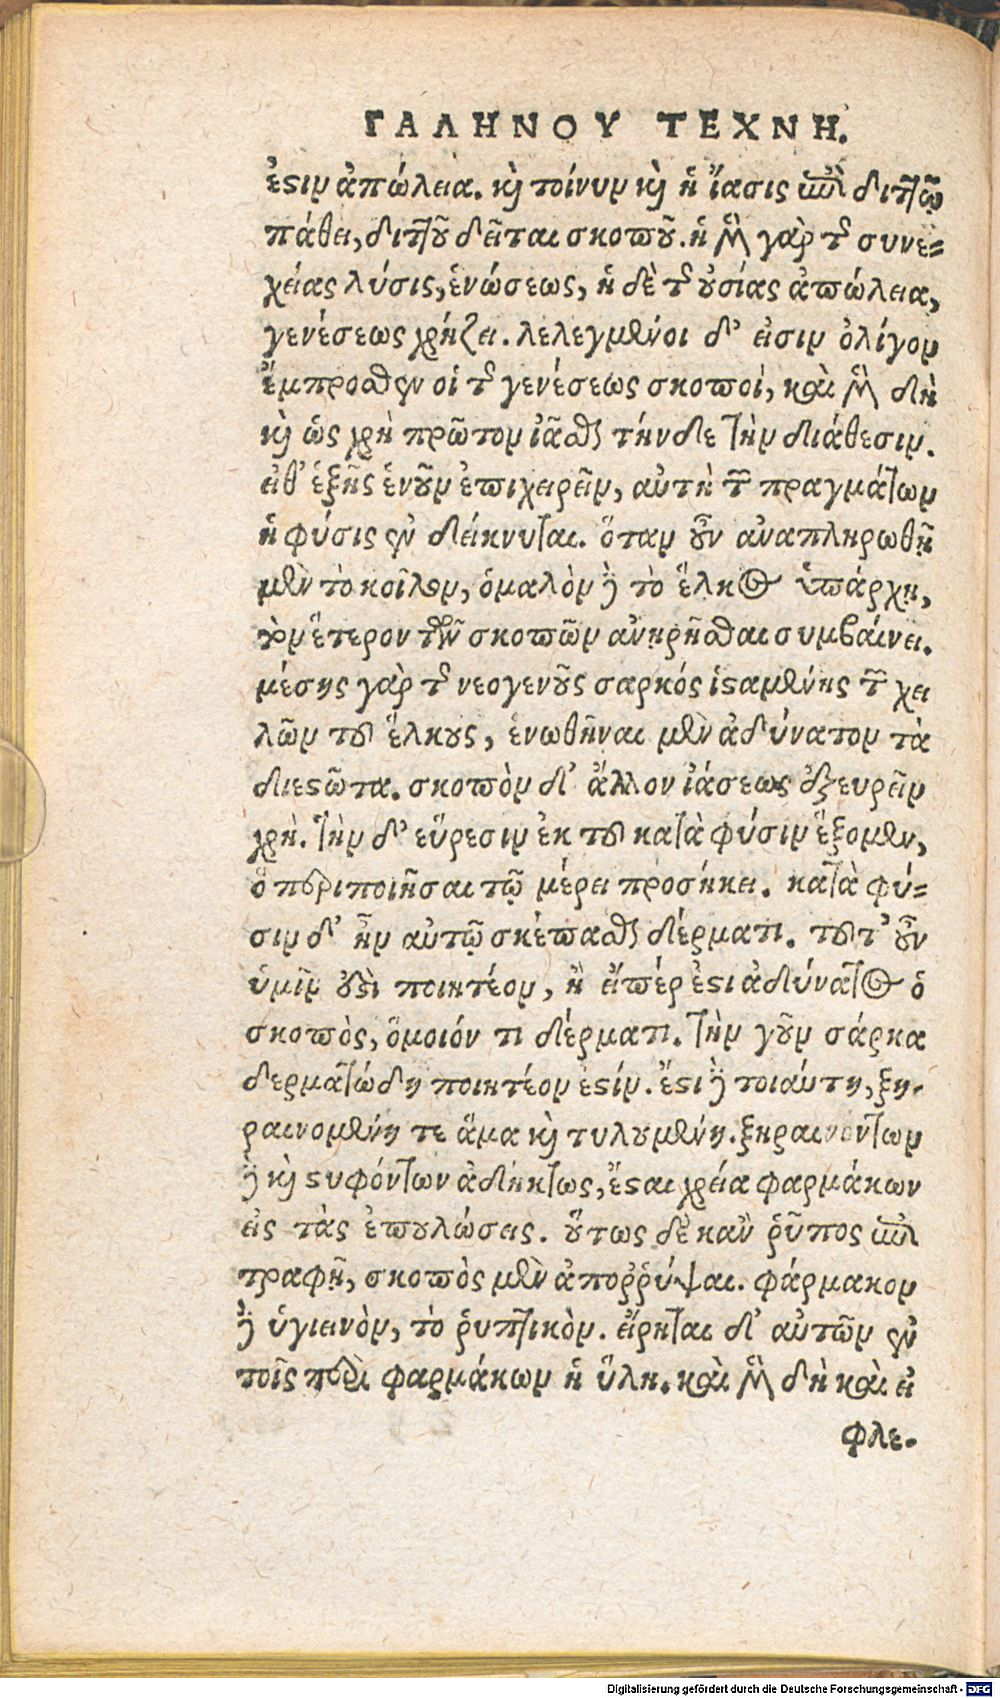 ΓΑΛΗΝΟΥ ΤΕΧΝΗ.
ἐστὶν ἀπώλεια. καὶ τοίνυν καὶ ἡ ἴασις ἐπὶ διττῷ
πάθει, διττοῦ δεῖται σκοποῦ. ἡ μὲν γὰρ τῆς συνε-
χείας λύσις, ἑνώσεως, ἡ δὲ τῆς οὐσίας ἀπώλεια,
γενέσεως χρῄζει. λελεγμένοι δ' εἰσὶν ὀλίγον
ἔμπροσθεν οἱ τῆς γενέσεως σκοποί, καὶ μὲν δὴ
καὶ ὡς χρὴ πρῶτον ἰᾶσθαι τήνδε τὴν διάθεσιν.
εἶθ' ἑξῆς ἑνοῦν ἐπιχειρεῖν, αὐτὴ τῶν πραγμάτων
ἡ φύσις ἐνδείκνυται. ὅταν οὖν ἀναπληρωθῇ
μὲν τὸ κοῖλον, ὁμαλὸν δὲ τὸ ἕλκος ὑπάρχῃ,
τὸν ἕτερον τῶν σκοπῶν ἀνῃρῆσθαι συμβαίνει.
μέσης γὰρ τῆς νεογενοῦς σαρκός ἱσταμένης τῶν χει
λῶν τοῦ ἕλκους, ἑνωθῆναι μὲν ἀδύνατον τὰ
διεστῶτα. σκοπὸν δ' ἄλλον ἰάσεως ἐξευρεῖν
χρή. τὴν δ' εὕρεσιν ἐκ τοῦ κατὰ φύσιν ἕξομεν,
ὃ περιποιῆσαι τῷ μέρει προσήκει. κατὰ φύ-
σιν δ' ἦν αὐτῷ σκέπασθαι δέρματι. τοῦτ' οὖν
ὑμῖν ἐστὶ ποιητέον, ἢ εἴπέρ ἐστι ἀδύνατος ὁ
σκοπὸς, ὅμοιόν τι δέρματι. τὴν γοῦν σάρκα
δερματώδη ποιητέον ἐστίν. ἔστι δὲ τοιαύτη, ξη-
ραινομένη τε ἅμα καὶ τυλουμένη. ξηραινόντων
δὲ καὶ στυφόντων ἀδήκτως, ἔσται χρεία φαρμάκων
εἰς τὰς ἐπουλώσεις. οὕτως δὲ κἂν ῥῦπος ἐπι
τραφῇ, σκοπὸς μὲν ἀποῤῥύψαι. φάρμακον
δὲ ὑγιεινὸν, τὸ ῥυπτικὸν. εἴρηται δ' αὐτῶν ἐν
τοῖς περὶ φαρμάκων ἡ ὕλη. καὶ μὲν δὴ καὶ εἰ
φλε.
Digitalisierung gefördert durch die Deutsche Forschungsgemeinschaft - DFG